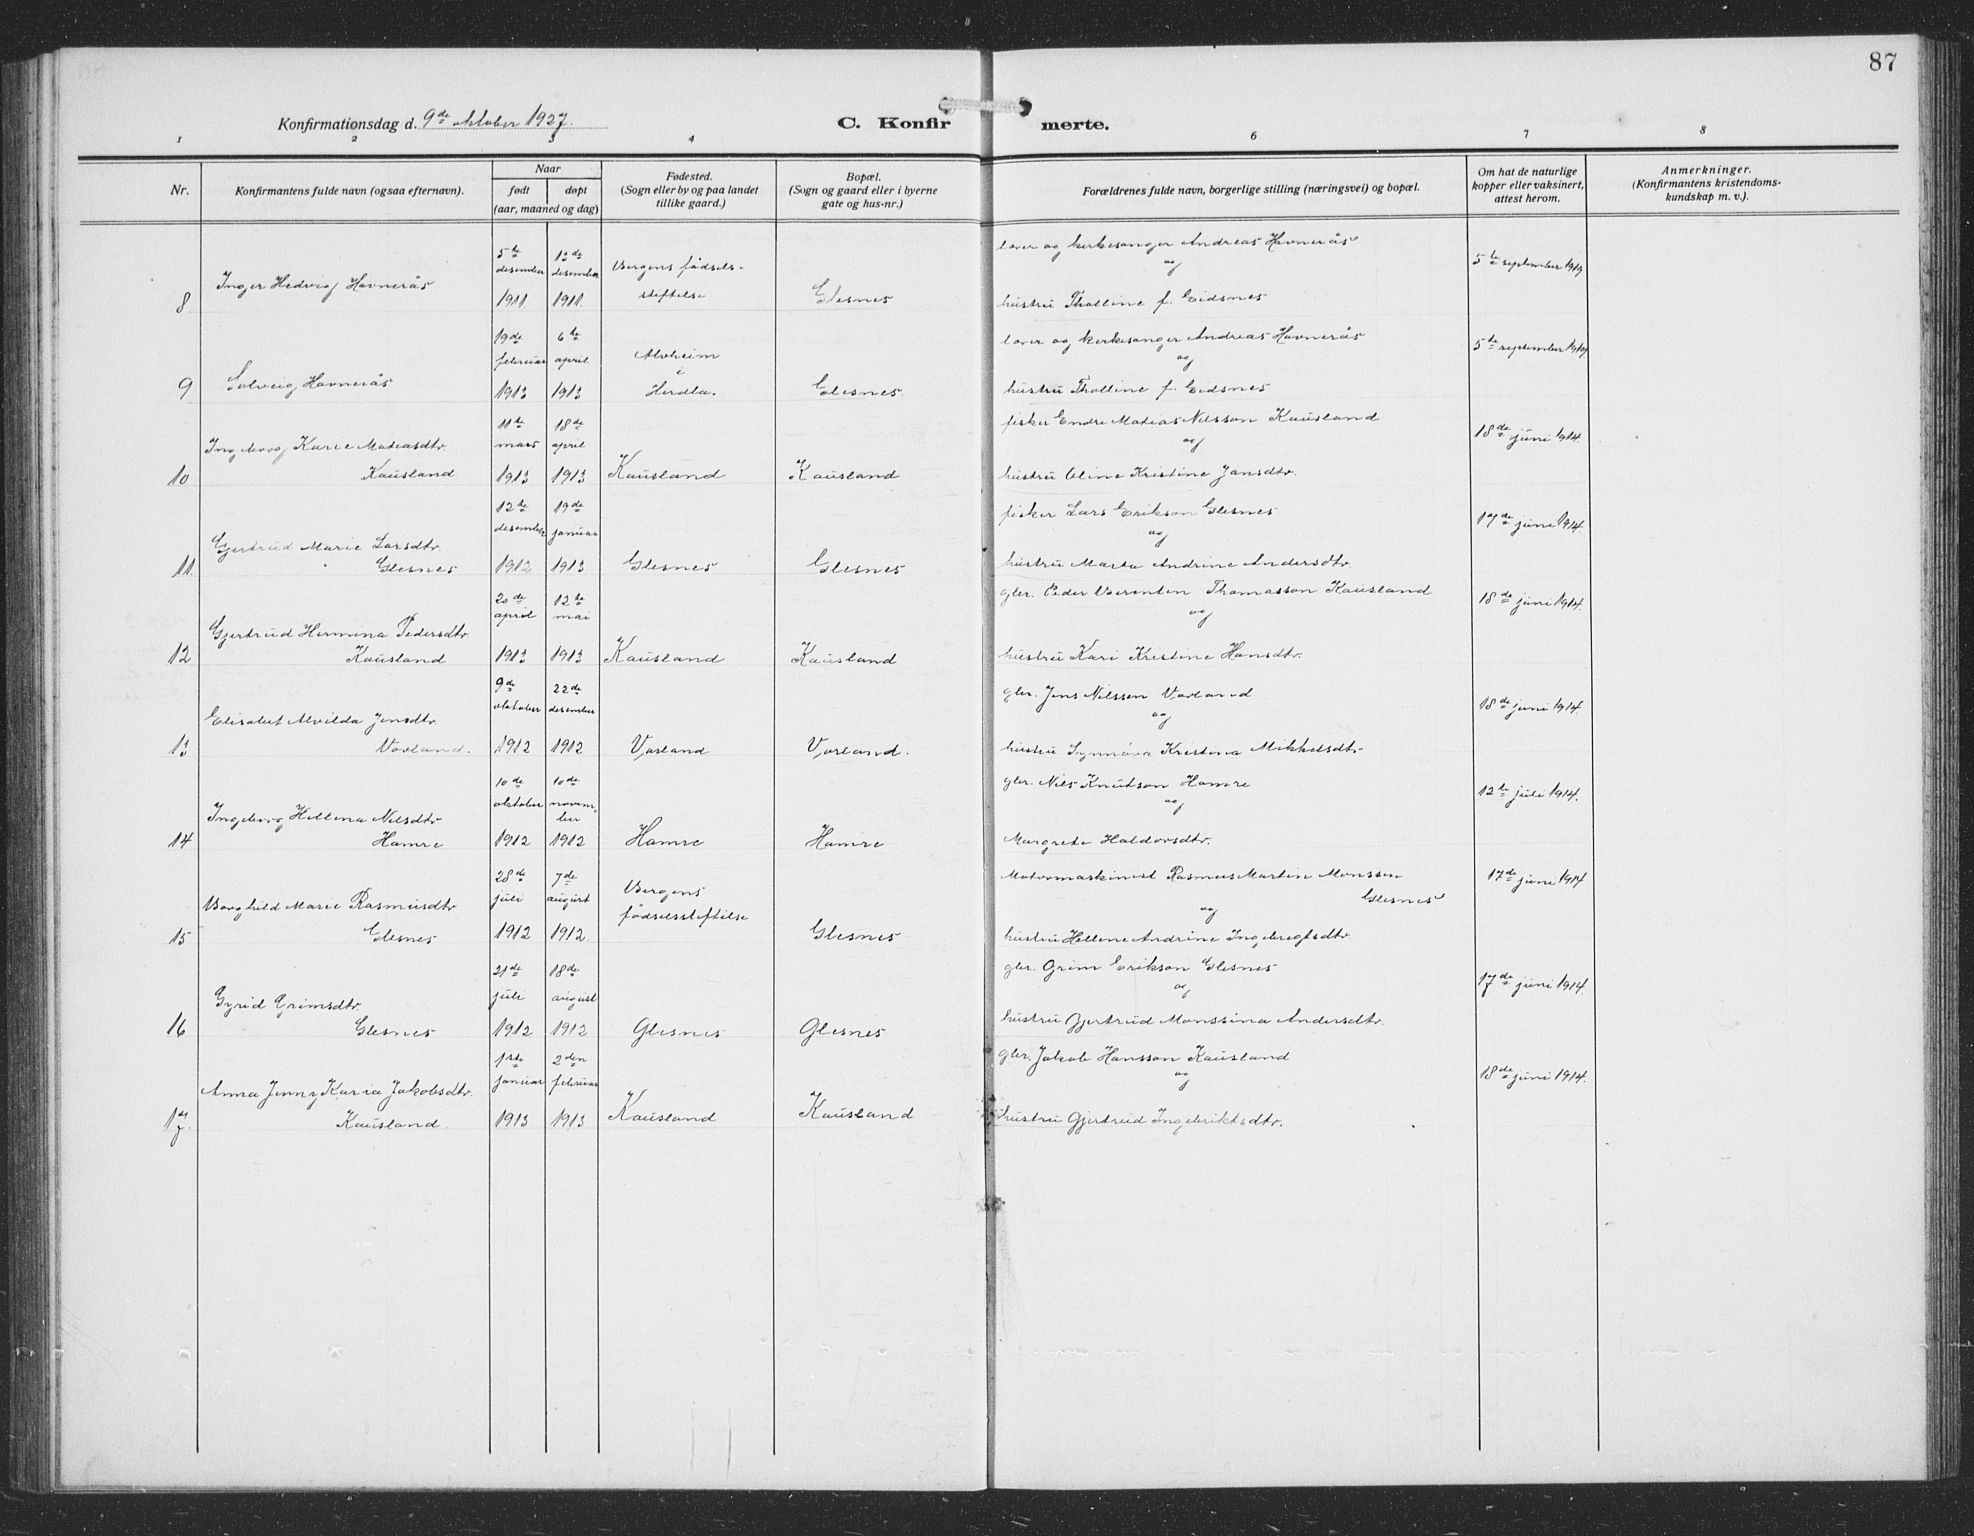 87
Konfirmationsdag d. 9de oktober 1927.
C. Konfirmerte.
1 2 3 4 6 7 8
Nr.
Konfirmantens fulde navn (ogsaa efternavn).
Naar
født døpt
(aar, maaned og dag)
Fødested.
(Sogn eller by og paa landet
tillike gaard.)
Bopæl.
(Sogn og gaard eller i byerne
gate og hus-nr.)
Forældrenes fulde navn, borgerlige stilling (næringsvei) og bopæl.
Om hat de naturlige
kopper eller vaksinert,
attest herom.
Anmerkninger.
(Konfirmantens kristendoms-
kundskap m. v.).
8 Inger Hedvig Hovnerås
5te desember 1911
13de desember 1911.
Bergens fødsels-
stiftelse
Glesnes
lærer og kirkesanger Andreas Hovnerås
og
hustru Tholline f. Eidsnes
5te september 1919
9 Solveig Hovnerås
19de februar 1913
6te april 1913
Alvheim
i
Herdla.
Glesnes.
lærer og kirkesanger Andreas Hovnerås
og
hustru Tholline f. Eidsnes
5te september 1919
10 Ingeborg Karie Matiasdtr.
Kausland
11te mars 1913
18de april 1913
Kausland
Kausland
fisker Endre Matias Nilsson Kausland
og
hustru Oline Kristine Jansdtr.
18de juni 1914.
11. Gjertrud Marie Larsdtr.
Glesnes
12te desember 1912
19de januar 1913
Glesnes
Glesnes
fisker Lars Erikson Glesnes
og
hustru Marta Andrine Andersdtr.
17de juni 1914.
12 Gjertrud Hermina Pedersdtr.
Kausland
20de april 1913
12te mai 1913
Kausland
Kausland
gbr. Peder Thomasson Kausland
og
hustru Kari Kristine Hansdtr.
18de juni 1914.
13 Elisabet Alvilda Jensdtr.
Vorland.
9de oktober 1912
22de desember 1912
Vorland
Vorland.
gbr. Jens Nilssen Vorland
og
hustru Synnøva Kristina Mikkelsdtr.
18de juni 1914.
14 Ingeborg Hellena Nilsdtr.
Hamre
10de oktober 1912
10de novem-
ber 1912
Hamre
Hamre
gbr. Nils Knutson Hamre
og
Margrete Haldorsdtr.
12te juli 1914.
15 Borghild Marie Rasmusdtr.
Glesnes
28de juli 1912
7de august 1912.
Bergens
fødselsstiftelse
Glesnes
Motormaskinist Rasmus Martin Monssen
Glesnes
og
hustru Hellene Andrine Ingebregtsdtr.
17de juni 1914
16 Gyrid Grimsdtr.
Glesnes
21de juli 1912
18de august 1912
Glesnes
Glesnes
gbr. Grim Erikson Glesnes
og
hustru Gjertrud Monssina Andersdtr.
17de juni 1914.
17. Anna Jenny Karia Jakobsdtr.
Kausland.
1ste januar 1913
2den februar 1913
Kausland
Kausland
gbr. Jakob Hansson Kausland
og
hustru Gjertrud Ingebriktsdtr.
18de juni 1914.